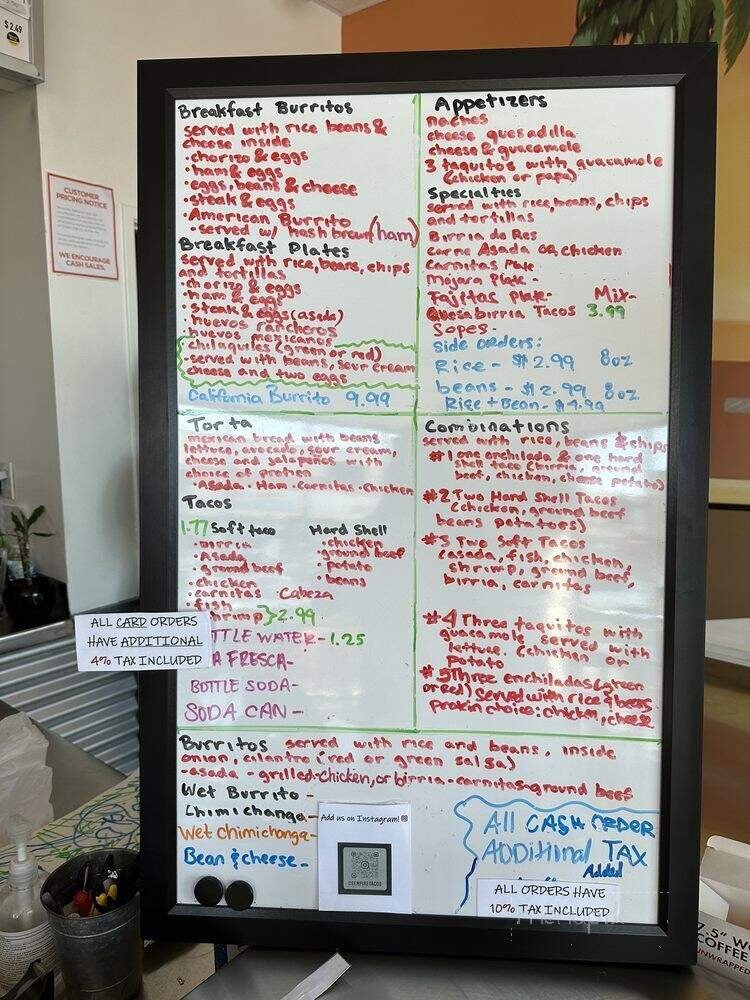 $2.49
CUSTOMER
PRICING NOTICE
WE ENCOURAGE
CASH SALES.
Breakfast Burritos
served with rice beans &
cheese inside
· chorizo & eggs
· ham & eggs
· eggs, beans & cheese
· steak & eggs
· American Burrito
· served w/ hash brown (ham)
Breakfast Plates
served with rice, beans, chips
and tortillas
· chorizo & eggs
· ham & eggs
· Steak & eggs (asada)
· huevos rancheros
· huevos mexicanos
chilaquiles (green or red)
· served with beans, sour cream
cheese and two eggs
California Burrito 9.99
Appetizers
nachos
cheese quesadilla
cheese & guacamole
3 taquitos with guacamole
(chicken or papa)
Specialties
served with rice, beans, chips
and tortillas
Birria de Res
Carne Asada or chicken
Carnitas Plate
Mojara Plate -
Fajitas Plate- Mix-
Quesabirria Tacos 3.99
Sopes-
Side orders:
Rice - $2.99 8oz
beans - $2.99 8oz
Rice + Bean - $4.99
Torta
mexican bread with beans
lettuce, avocado, sour cream,
cheese and jalapeños with
choice of protien
· Asada · Ham · Carnitas · Chicken
Tacos
1.77 Soft taco
· birria
· Asada
· ground beef
· chicken
· carnitas Cabeza
· fish
shrimp } 2.99
Hard Shell
· chicken
· ground beef
· potato
· beans
TTLE WATER - 1.25
A FRESCA-
BOTTLE SODA-
SODA CAN -
ALL CARD ORDERS
HAVE ADDITIONAL
4% TAX INCLUDED
Combinations
served with rice, beans & chips
#1 one enchilada & one hard
shell taco (birria, ground
beef, chicken, cheese potato)
#2 Two Hard Shell Tacos
(chicken, ground beef
beans potatoes)
#3 Two Soft Tacos
(asada, fish, chicken,
shrimp, ground beef,
birria, carnitas
#4 Three taquitos with
guacamole served with
lettuce. (chicken or
Potato
#5 Three enchiladas (green
or red) served with rice & beans
protein choice: chicken, cheese
Burritos served with rice and beans, inside
onion, cilantro (red or green salsa)
-asada - grilled-chicken, or birria -carnitas-ground beef
Wet Burrito -
Chimichanga-
Wet chimichanga-
Bean & cheese -
Add us on Instagram!
All CASH ORDER
ADDITIONAL TAX
Added
ALL ORDERS HAVE
10% TAX INCLUDED
7.5" W
COFFEE
UNWRAPPED